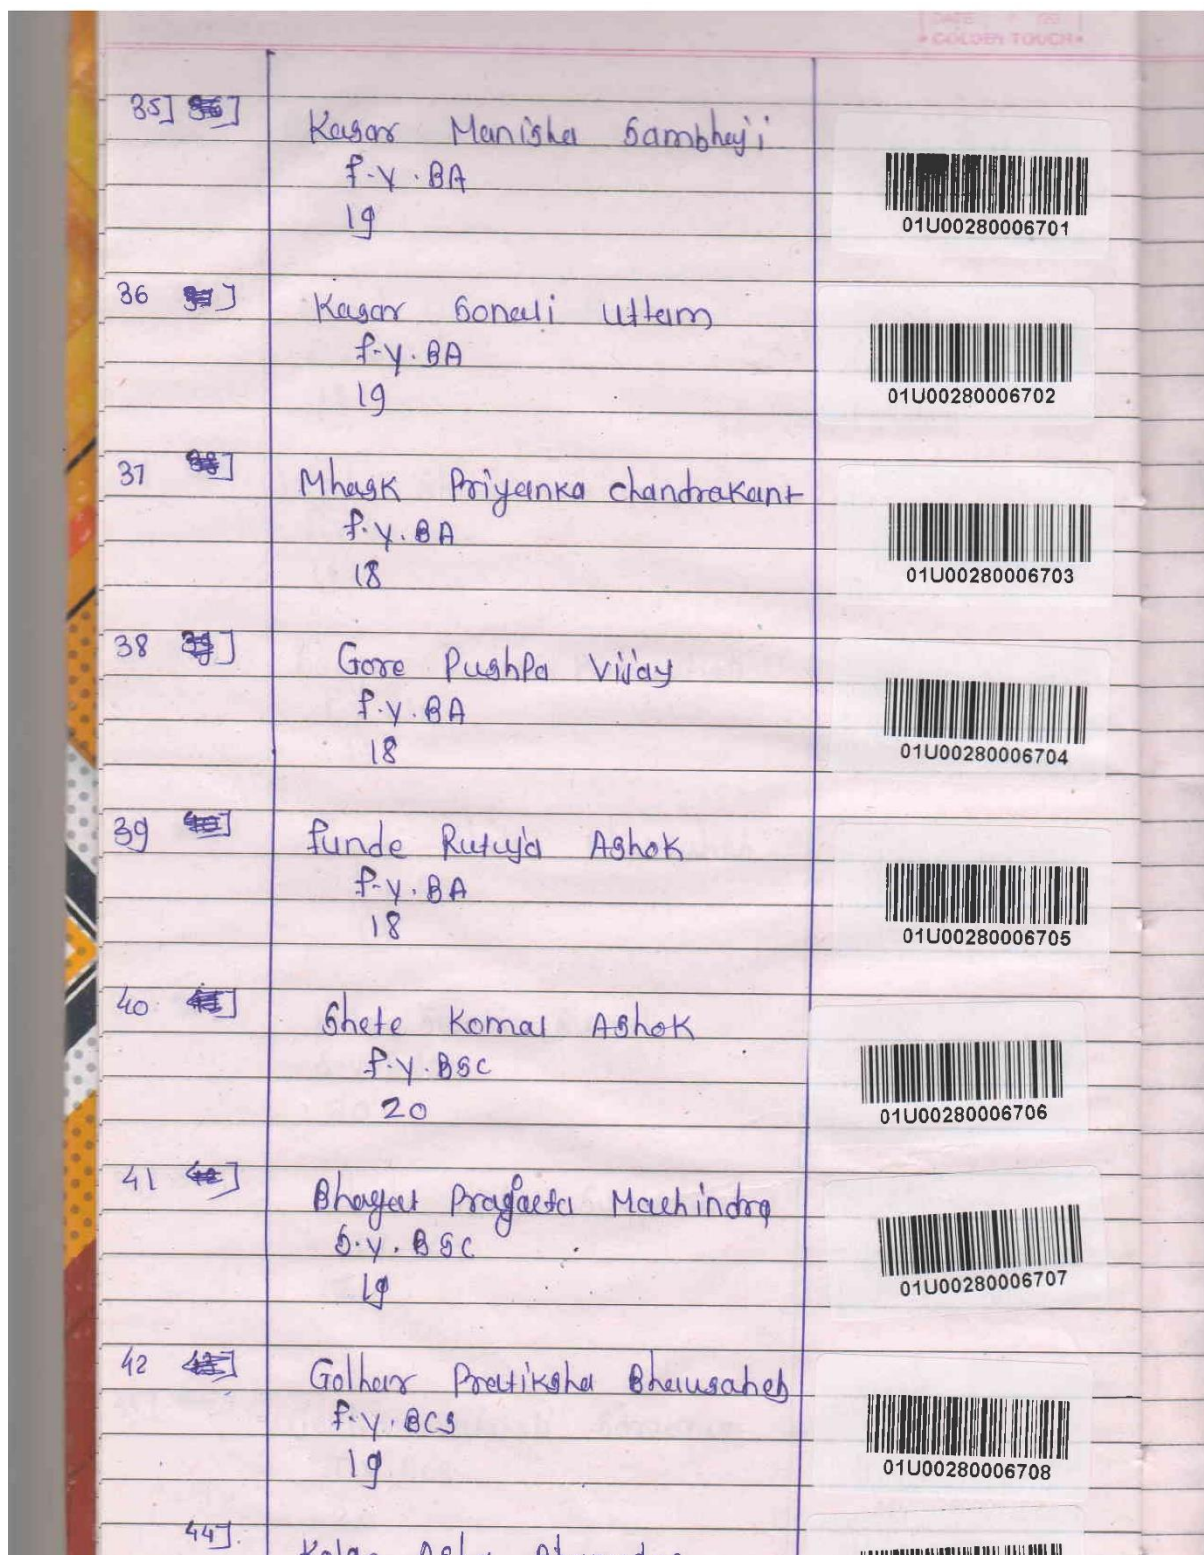 GOLDEN TOUCH
35]
Kasar Manisha Sambhaji
F.Y.BA
19
01U00280006701
36
Kasar Sonali Uttam
F.Y.BA
19
01U00280006702
37
Mhask Priyanka Chandrakant
F.Y.BA
18
01U00280006703
38
Gore Pushpa Vijay
F.Y.BA
18
01U00280006704
39
Funde Rutuja Ashok
F.Y.BA
18
01U00280006705
40
Shete Komal Ashok
F.Y.BSC
20
01U00280006706
41
Bhagat Machindra
S.Y.BSC
19
01U00280006707
42
Golhar Pratiksha Bhausaheb
F.Y.BCS
19
01U00280006708
44].